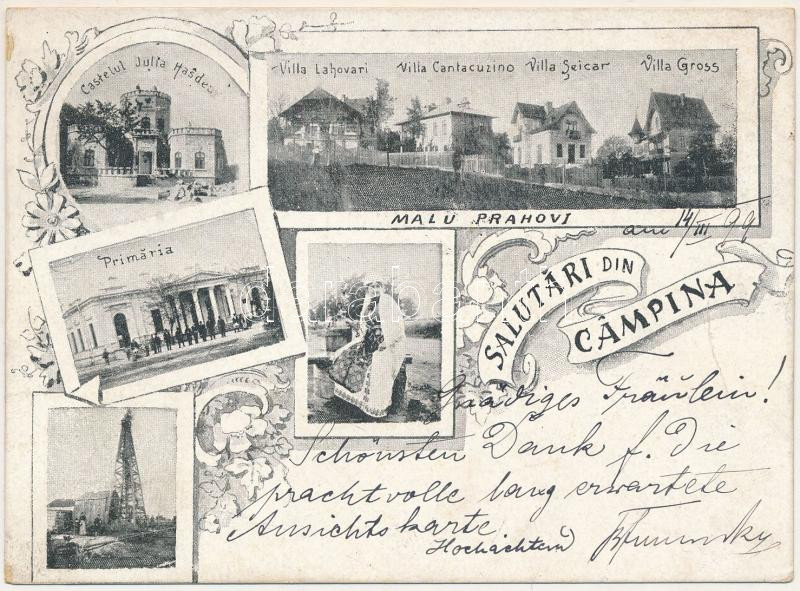 Castelul Julia Hașdeu
Villa Lahovari Villa Cantacuzino Villa Șeicar Villa Gross
MALU PRAHOVI
14/III 99
Primăria
SALUTĂRI DIN
CÂMPINA
Gnädiges Fräulein!
Schönsten Dank f. Die
prachtvolle lang erwartete
Ansichtskarte
Hochachtend
darabanth